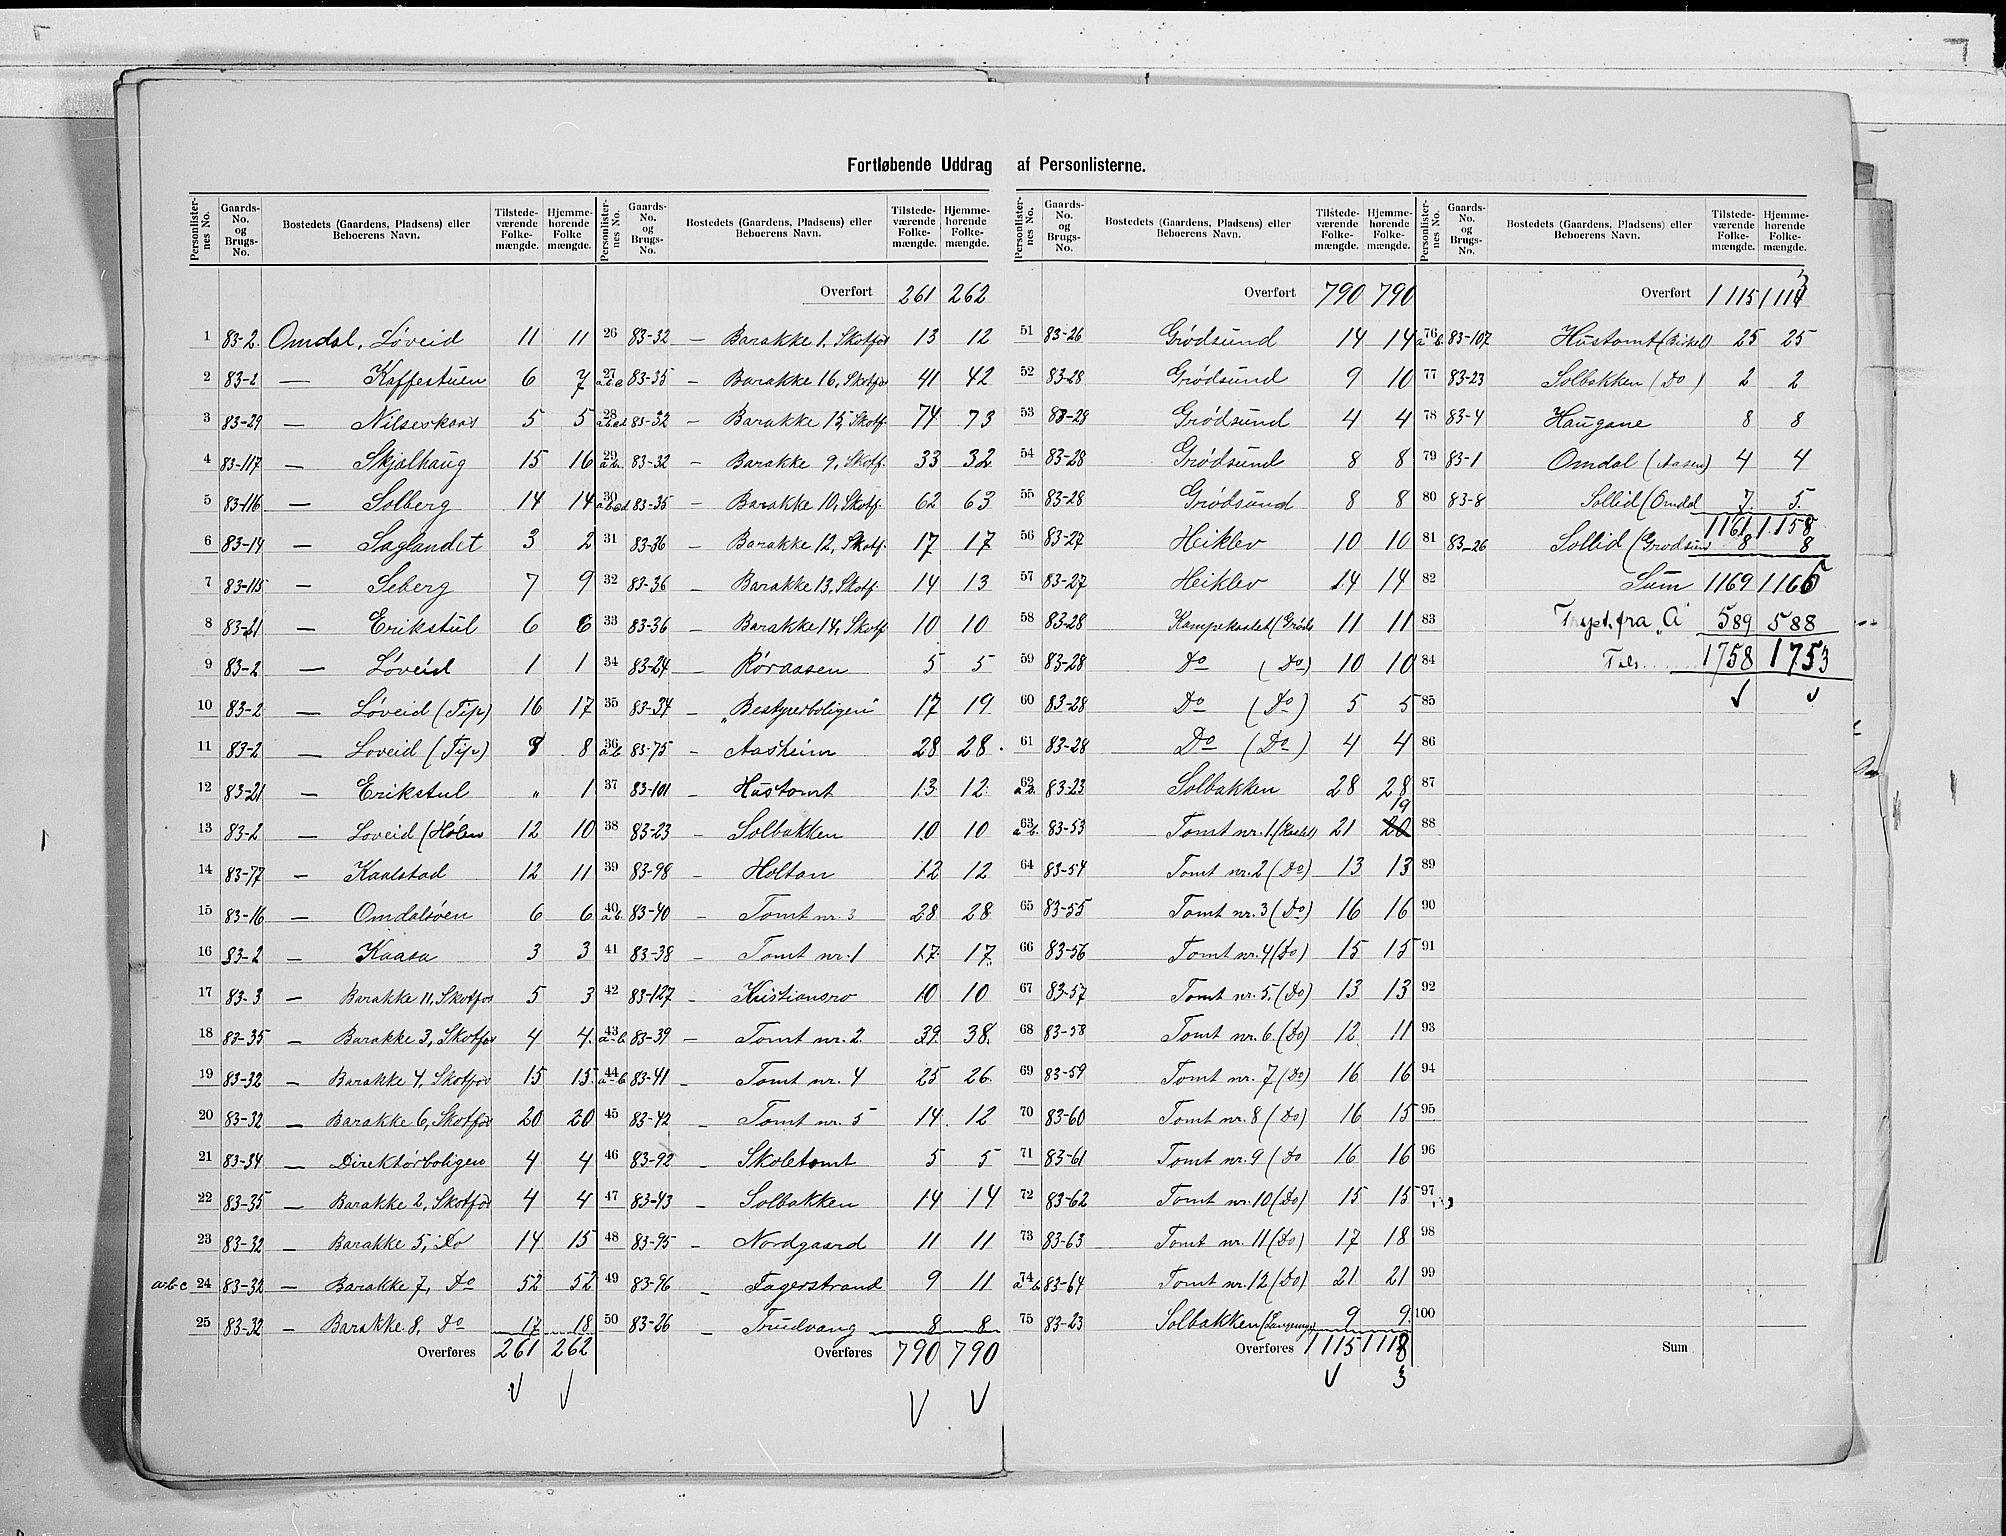 Fortløbende Uddrag af Personlisterne.
Personlister-nes No. Gaards-No. og Brugs-No. Bostedets (Gaardens, Pladsens) eller Beboerens Navn. Tilstede-værende Folke-mængde. Hjemme-hørende Folke mængde.
1 83-2 Omdal, Løveid 11 11
2 83-2 — Kaffestuen 6 7
3 83-29 — Nilseskaas 5 5
4 83-117 — Skjælhaug 15 16
5 83-116 — Solberg 14 14
6 83-14 — Saglandet 3 2
7 83-115 — Seberg 7 9
8 83-21 — Erikstul 6 6
9 83-2 — Løveid 1 1
10 83-2 — Løveid (Tip) 16 17
11 83-2 — Løveid (Tip) 8 8
12 83-21 — Erikstul " 1
13 83-2 — Løveid (Hølen 12 10
14 83-77 — Kaalstad 12 11
15 83-16 — Omdalsøen 6 6
16 83-2 — Kaasa 3 3
17 83-3 — Barakke 11, Skotfos 5 3
18 83-35 — Barakke 3, Skotfos 4 4
19 83-32 — Barakke 4, Skotfos 15 15
20 83-32 — Barakke 6, Skotfos 20 20
21 83-34 — Direktørboligen 4 4
22 83-35 — Barakke 2, Skotfos 4 4
23 83-32 — Barakke 5, Do 14 15
a-b-c 24 83-32 — Barakke 7, Do 52 52
25 83-32 — Barakke 8, Do 17 18
Overføres 261 262
Personlister-nes No. Gaards-No. og Brugs-No. Bostedets (Gaardens, Pladsens) eller Beboerens Navn. Tilstede-værende Folke-mængde. Hjemme-hørende Folke-mængde.
Overført 261 262
26 83-32 — Barakke 1, Skotfos 13 12
27 a.b.c 83-35 — Barakke 16, Skotfos 41 42
28 a.b.c.d 83-32 — Barakke 15, Skotf. 74 73
29 a.b. 83-32 — Barakke 9, Skotf. 33 32
30 a.b.c.d 83-35 — Barakke 10, Skotf. 62 63
31 83-36 — Barakke 12, Skotf. 17 17
32 83-36 — Barakke 13, Skotf. 14 13
33 83-36 — Barakke 14, Skotf 10 10
34 83-24 — Røraasen 5 5
35 83-34 — "Bestyrerboligen" 17 19
36 a.b. 83-75 — Aasheim 28 28
37 83-101 — Hustomt 13 12
38 83-23 — Solbakken 10 10
39 83-98 — Holtan 12 12
40 a.b. 83-40 — Tomt nr. 3 28 28
41 83-38 — Tomt nr. 1 17 17
42 83-127 — Kristiansro 10 10
43 a-b. 83-39 — Tomt nr. 2. 39 38
44 a-b 83-41 — Tomt nr. 4 25 26
45 83-42 — Tomt nr. 5 14 12
46 83-92 — Skoletomt 5 5
47 83-43 — Solbakken 14 14
48 83-95 — Nordgaard 11 11
49 83-96 — Fagerstrand 9 11
50 83-26 — Trudvang 8 8
Overføres 790 790
Personlister-nes No. Gaards-No. og Brugs-No. Bostedets (Gaardens, Pladsens) eller Beboerens Navn. Tilstede-værende Folke-mængde. Hjemme-hørende Folke-mængde.
Overført 790 790
51 83-26 Grødsund 14 14
52 83-28 Grødsund 9 10
53 83-28 Grødsund 4 4
54 83-28 Grødsund 8 8
55 83-28 Grødsund 8 8
56 83-27 Heiklev 10 10
57 83-27 Heiklev 14 14
58 83-28 Kampekastet (Grøds 11 11
59 83-28 Do (Do) 10 10
60 83-28 Do (Do) 5 5
61 83-28 Do (Do) 4 4
62 a.b. 83-23 Solbakken 28 28
63 a-b. 83-53 Tomt nr. 1. (Kastet) 21 20 19
64 83-54 Tomt nr. 2 (Do) 13 13
65 83-55 Tomt nr. 3 (Do) 16 16
66 83-56 Tomt nr. 4 (Do) 15 15
67 83-57 Tomt nr. 5. (Do) 13 13
68 83-58 Tomt nr. 6. (Do) 12 11
69 83-59 Tomt nr. 7 (Do) 16 16
70 83-60 Tomt nr. 8 (Do) 16 15
71 83-61 Tomt nr. 9 (Do 16 16
72 83-62 Tomt nr. 10 (Do) 15 15
73 83-63 Tomt nr. 11 (Do) 17 18
74 a b 83-64 Tomt nr. 12 (Do) 21 21
75 83-23 Solbakken 9 9
Overføres 1115
3
Personlister-nes No. Gaards-No. og Brugs-No. Bostedets (Gaardens, Pladsens) eller Beboerens Navn. Tilstede-værende Folke-mængde. Hjemme-hørende Folke-mængde.
Overført 1115 1114 3
76 a b. 83-107 Hustomt (Birkel) 25 25
77 83-23 Solbakken (Do) 2 2
78 83-4 Haugane 8 8
79 83-1 Omdal (Aasen) 4 4
80 83-8 Sollid (Omdal 7 5
1161 1158
81 83-26 Sollid (Grødsun 8 8
82 Sum 1169 1166 5
83 fra "A" 589 588
84 1758 1753
85
86
87
88
89
90
91
92
93
94
95
96
97
98
99
100
Sum